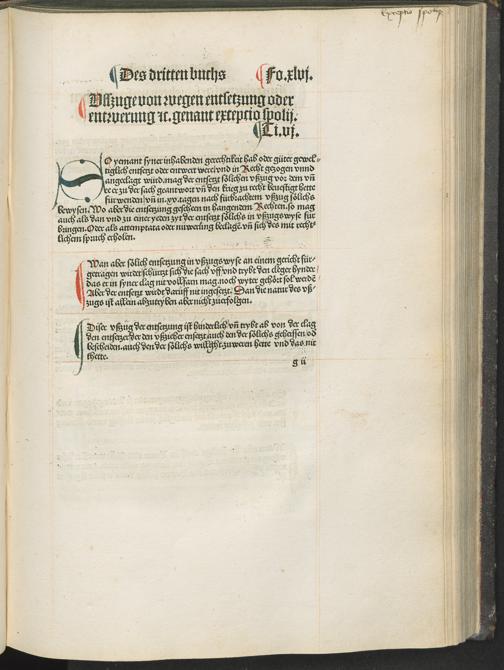 Exceptio spolij
Des dritten buchs Fo. xlvj.
Vßzuge von wegen entsetzung oder
entwerung ⁊c. genant exceptio spolij.
Ti. vj.
SO yemant syner inhabenden gerechtikeit hab oder güter gewel⸗
tiglich entsetzt oder entwert wert vnd in Recht gezogen vnnd
angeclagt wurd. mag der entsetzt sölichen vßzug vor dem vñ
ee er zu der sach geantwort vñ den krieg zu recht beuestigt hette
fürwenden vñ in .xv. tagen nach fürbrachtem vßzug sölichs
bewysen. Wo aber die entsetzung gescheen in hangendem Rechten. so mag
auch als dan vnd zu einer yeden zyt der entsetzt sölichs in vßzugs wyse für
bringen. Oder als attemptata oder nüwerung beclagē. vñ sich des mit recht⸗
lichem spruch erholen.
Wan aber sölich entsetzung in vßzugs wyse an einem gericht für⸗
getragen wirdet schürtzt sich die sach vff vnd trybt den cleger hynder
das er in syner clag nit vollfarn mag. noch wyter gehört sol werdē
Aber der entsetzt wirdt daruff nit ingesetzt. Dan die natur des vß⸗
zugs ist allein abzutryben aber nicht zuerfolgen.
Diser vßzug der entsetzung ist hinderlich vñ trybt ab von der clag
den entsetzer der den vßzieher entsetzt. auch den der sölichs geheissen od
bescheiden. auch den der sölichs willigt zuweren hette vnd das nit
thette.
g ii